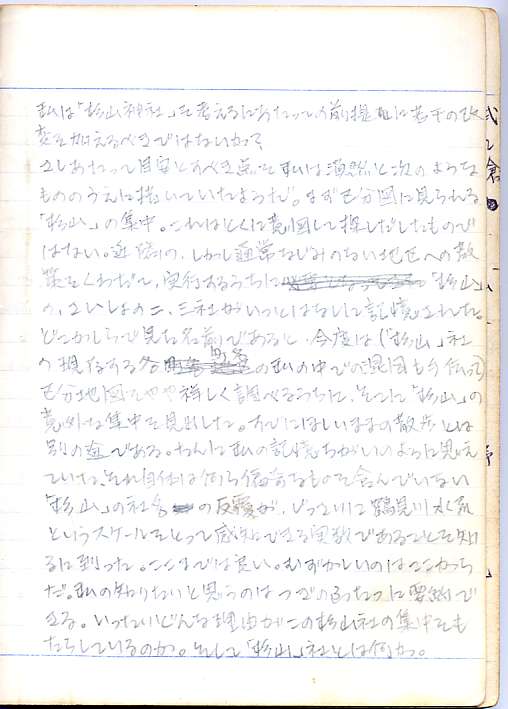 私は「杉山神社」を考えるにあたっての前提に若干の改
変を加えるべきではないか?
さしあたって目安とすべき点を私は漠然と次のような
もののうえに描いていたようだ。まず区分図に見られる
「杉山」の集中。これはとくに意図して探しだしたもので
はない。近隣の、しかし通常なじみのない地区への散
策をくわだて、実行するうちに「杉山」
の、さいしょの二、三社がいつとはなしに記憶された。
どこかしらで見た名前であると、今度は(「杉山」社
の現存する各の私の中での異同も手伝って)
区分地図をやや詳しく調べるうちに、そこに「杉山」の
意外な集中を見出した。すでにほしいままの散歩とは
別の途である。たんに私の記憶ちがいのように見え
ていた、それ自体は何ら偏奇なものを含んでいない
「杉山」の社名の反覆が、じっさいに鶴見川水系
というスケールをとって底流にできる実数であることを知
るに到った。ここまでは良い。むずかしいのはここから
だ。私の知りたいと思うのはつぎのふたつに要約で
きる。いったいどんな理由がこの杉山社の集中をも
たらしているのか。そして「杉山」社とは何か。
武
倉